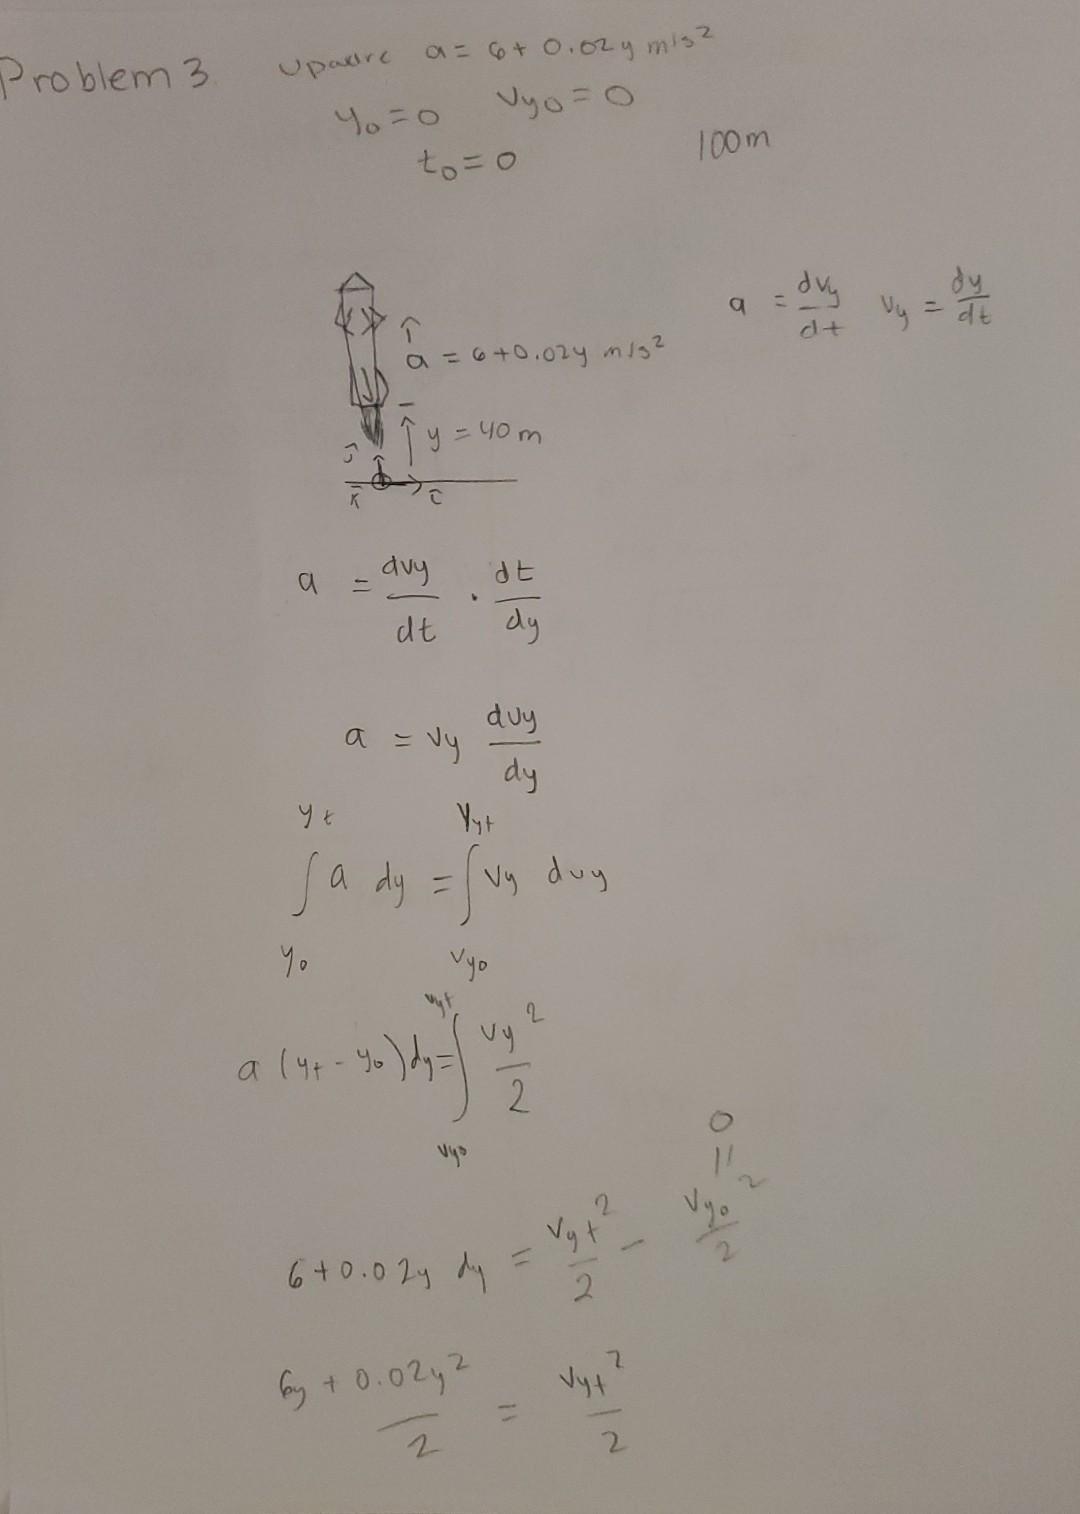 Problem 3 upware a = 6 + 0.02y m/s²
y₀ = 0 vy₀ = 0
t₀ = 0 100m
a = dvy/dt vy = dy/dt
a = 6+0.02y m/s²
y = 40 m
ĵ
k̂ î
a = dvy/dt · dt/dy
a = vy dvy/dy
yt Vyt
∫ a dy = ∫ vy dvy
y₀ vy₀
vyt
a (yt - y₀) dy = ∫ vy²/2
vy₀
0
||
6 + 0.02y dy = vyt²/2 - vy₀²/2
6y + 0.02y²/2 = vyt²/2